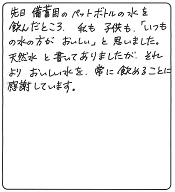 先日 備蓄用の ペットボトルの 水を
飲んだところ、私も 子供も、「いつも
の水の方が おいしい」と 思いました。
天然水 と 書いてありましたが、それ
より おいしい水を、常に 飲めることに
感謝しています。